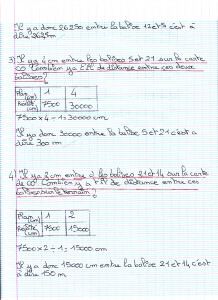 Il y a donc 26250 entre la balise 12 et 5 c'est à
dire 262,5m
3) Il y a 4 cm entre les balises 5 et 21 sur la carte
CO Combien y a t'il de distance entre ces deux
balises?
Plan (cm) 1 4
Réalité (cm) 7500 30000
7500 x 4 ÷ 1 = 30000 cm
Il y a donc 30000 entre la balise 5 et 21 c'est à
dire 300 m
4) Il y a 2 cm entre les balises 21 et 14 sur la carte
de CO. Combien y a t'il de distance entre ces
balises sur le terrain?
Plan (cm) 1 2
Réalité (cm) 7500 15000
7500 x 2 ÷ 1 = 15000 cm
Il y a donc 15000 cm entre la balise 21 et 14, c'est
à dire 150 m.